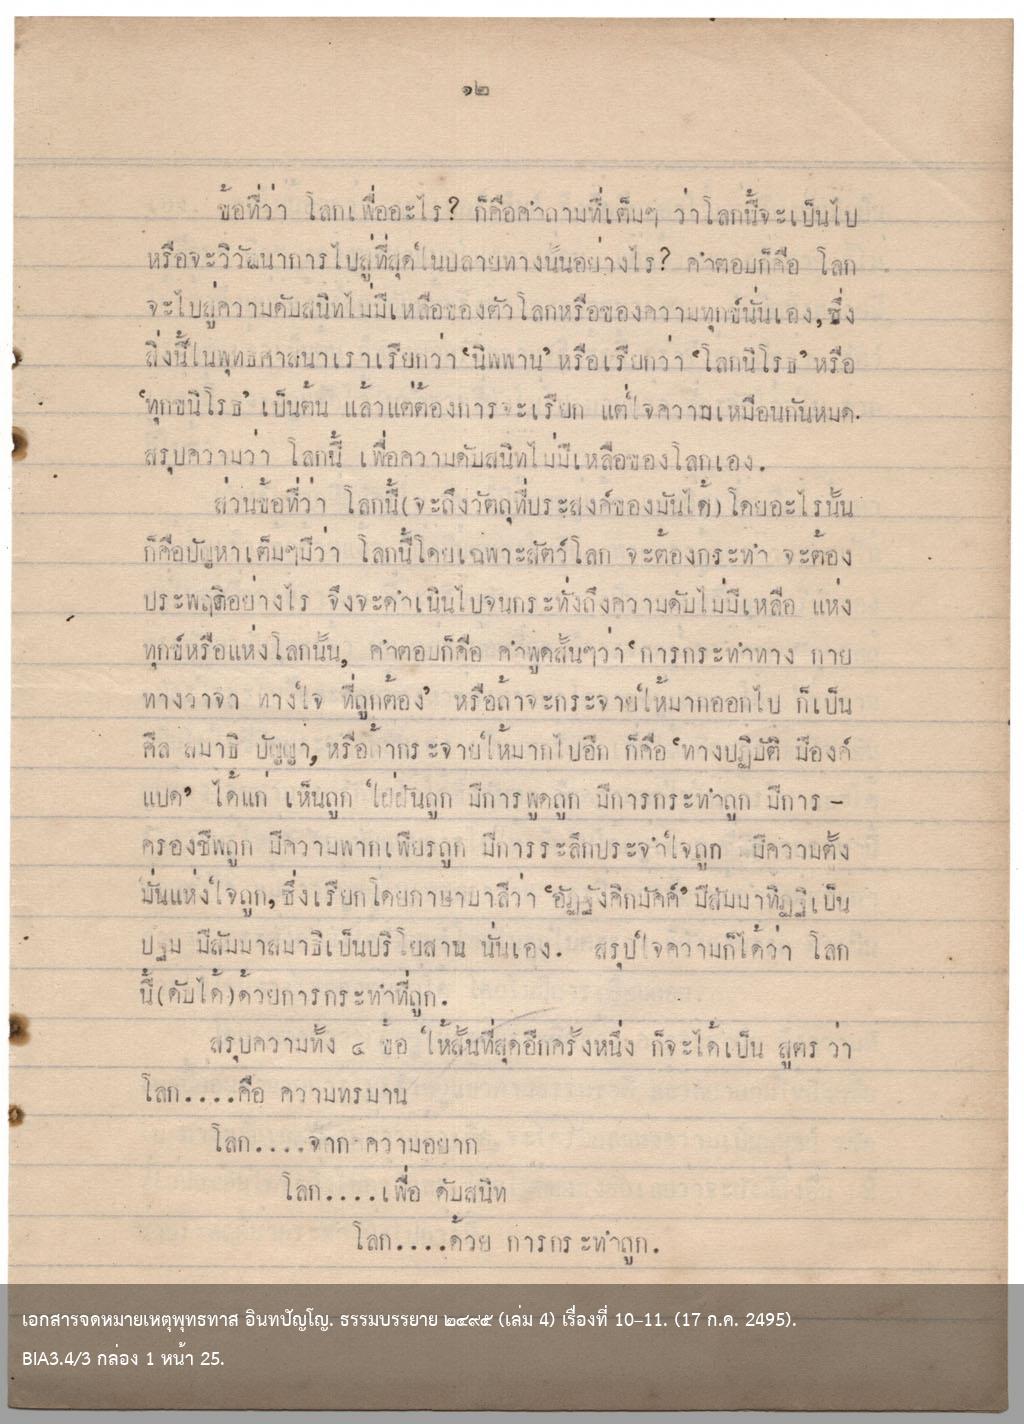 ๑๒
ข้อที่ว่า โลกเพื่ออะไร? ก็คือคำถามที่เต็มๆ ว่าโลกนี้จะเป็นไป
หรือจะวิวัฒนาการไปสู่ที่สุดในปลายทางนั้นอย่างไร? คำตอบก็คือ โลก
จะไปสู่ความดับสนิทไม่มีเหลือของตัวโลกหรือของความทุกข์นั่นเอง, ซึ่ง
สิ่งนี้ในพุทธศาสนาเราเรียกว่า ‘นิพพาน’ หรือเรียกว่า ‘โลกนิโรธ’ หรือ
‘ทุกขนิโรธ’ เป็นต้น แล้วแต่ต้องการจะเรียก แต่ใจความเหมือนกันหมด.
สรุปความว่า โลกนี้ เพื่อความดับสนิทไม่มีเหลือของโลกเอง.
ส่วนข้อที่ว่า โลกนี้(จะถึงวัตถุที่ประสงค์ของมันได้)โดยอะไรนั้น
ก็คือปัญหาเต็มๆมีว่า โลกนี้โดยเฉพาะสัตว์โลก จะต้องกระทำ จะต้อง
ประพฤติอย่างไร จึงจะดำเนินไปจนกระทั่งถึงความดับไม่มีเหลือ แห่ง
ทุกข์หรือแห่งโลกนั้น, คำตอบก็คือ คำพูดสั้นๆว่า ‘การกระทำทาง กาย
ทางวาจา ทางใจ ที่ถูกต้อง’ หรือถ้าจะกระจายให้มากออกไป ก็เป็น
ศีล สมาธิ ปัญญา, หรือถ้ากระจายให้มากไปอีก ก็คือ ‘ทางปฏิบัติ มีองค์
แปด’ ได้แก่ เห็นถูก ใฝ่ฝันถูก มีการพูดถูก มีการกระทำถูก มีการ -
ครองชีพถูก มีความพากเพียรถูก มีการระลึกประจำใจถูก มีความตั้ง
มั่นแห่งใจถูก, ซึ่งเรียกโดยภาษาบาลีว่า ‘อัฏฐังคิกมัคค์’ มีสัมมาทิฏฐิเป็น
ปฐม มีสัมมาสมาธิเป็นปริโยสาน นั่นเอง. สรุปใจความก็ได้ว่า โลก
นี้(ดับได้)ด้วยการกระทำที่ถูก.
สรุปความทั้ง ๔ ข้อ ให้สั้นที่สุดอีกครั้งหนึ่ง ก็จะได้เป็น สูตร ว่า
โลก....คือ ความทรมาน
โลก....จาก ความอยาก
โลก....เพื่อ ดับสนิท
โลก....ด้วย การกระทำถูก.
เอกสารจดหมายเหตุพุทธทาส อินทปัญโญ. ธรรมบรรยาย ๒๔๙๕ (เล่ม 4) เรื่องที่ 10–11. (17 ก.ค. 2495).
BIA3.4/3 กล่อง 1 หน้า 25.